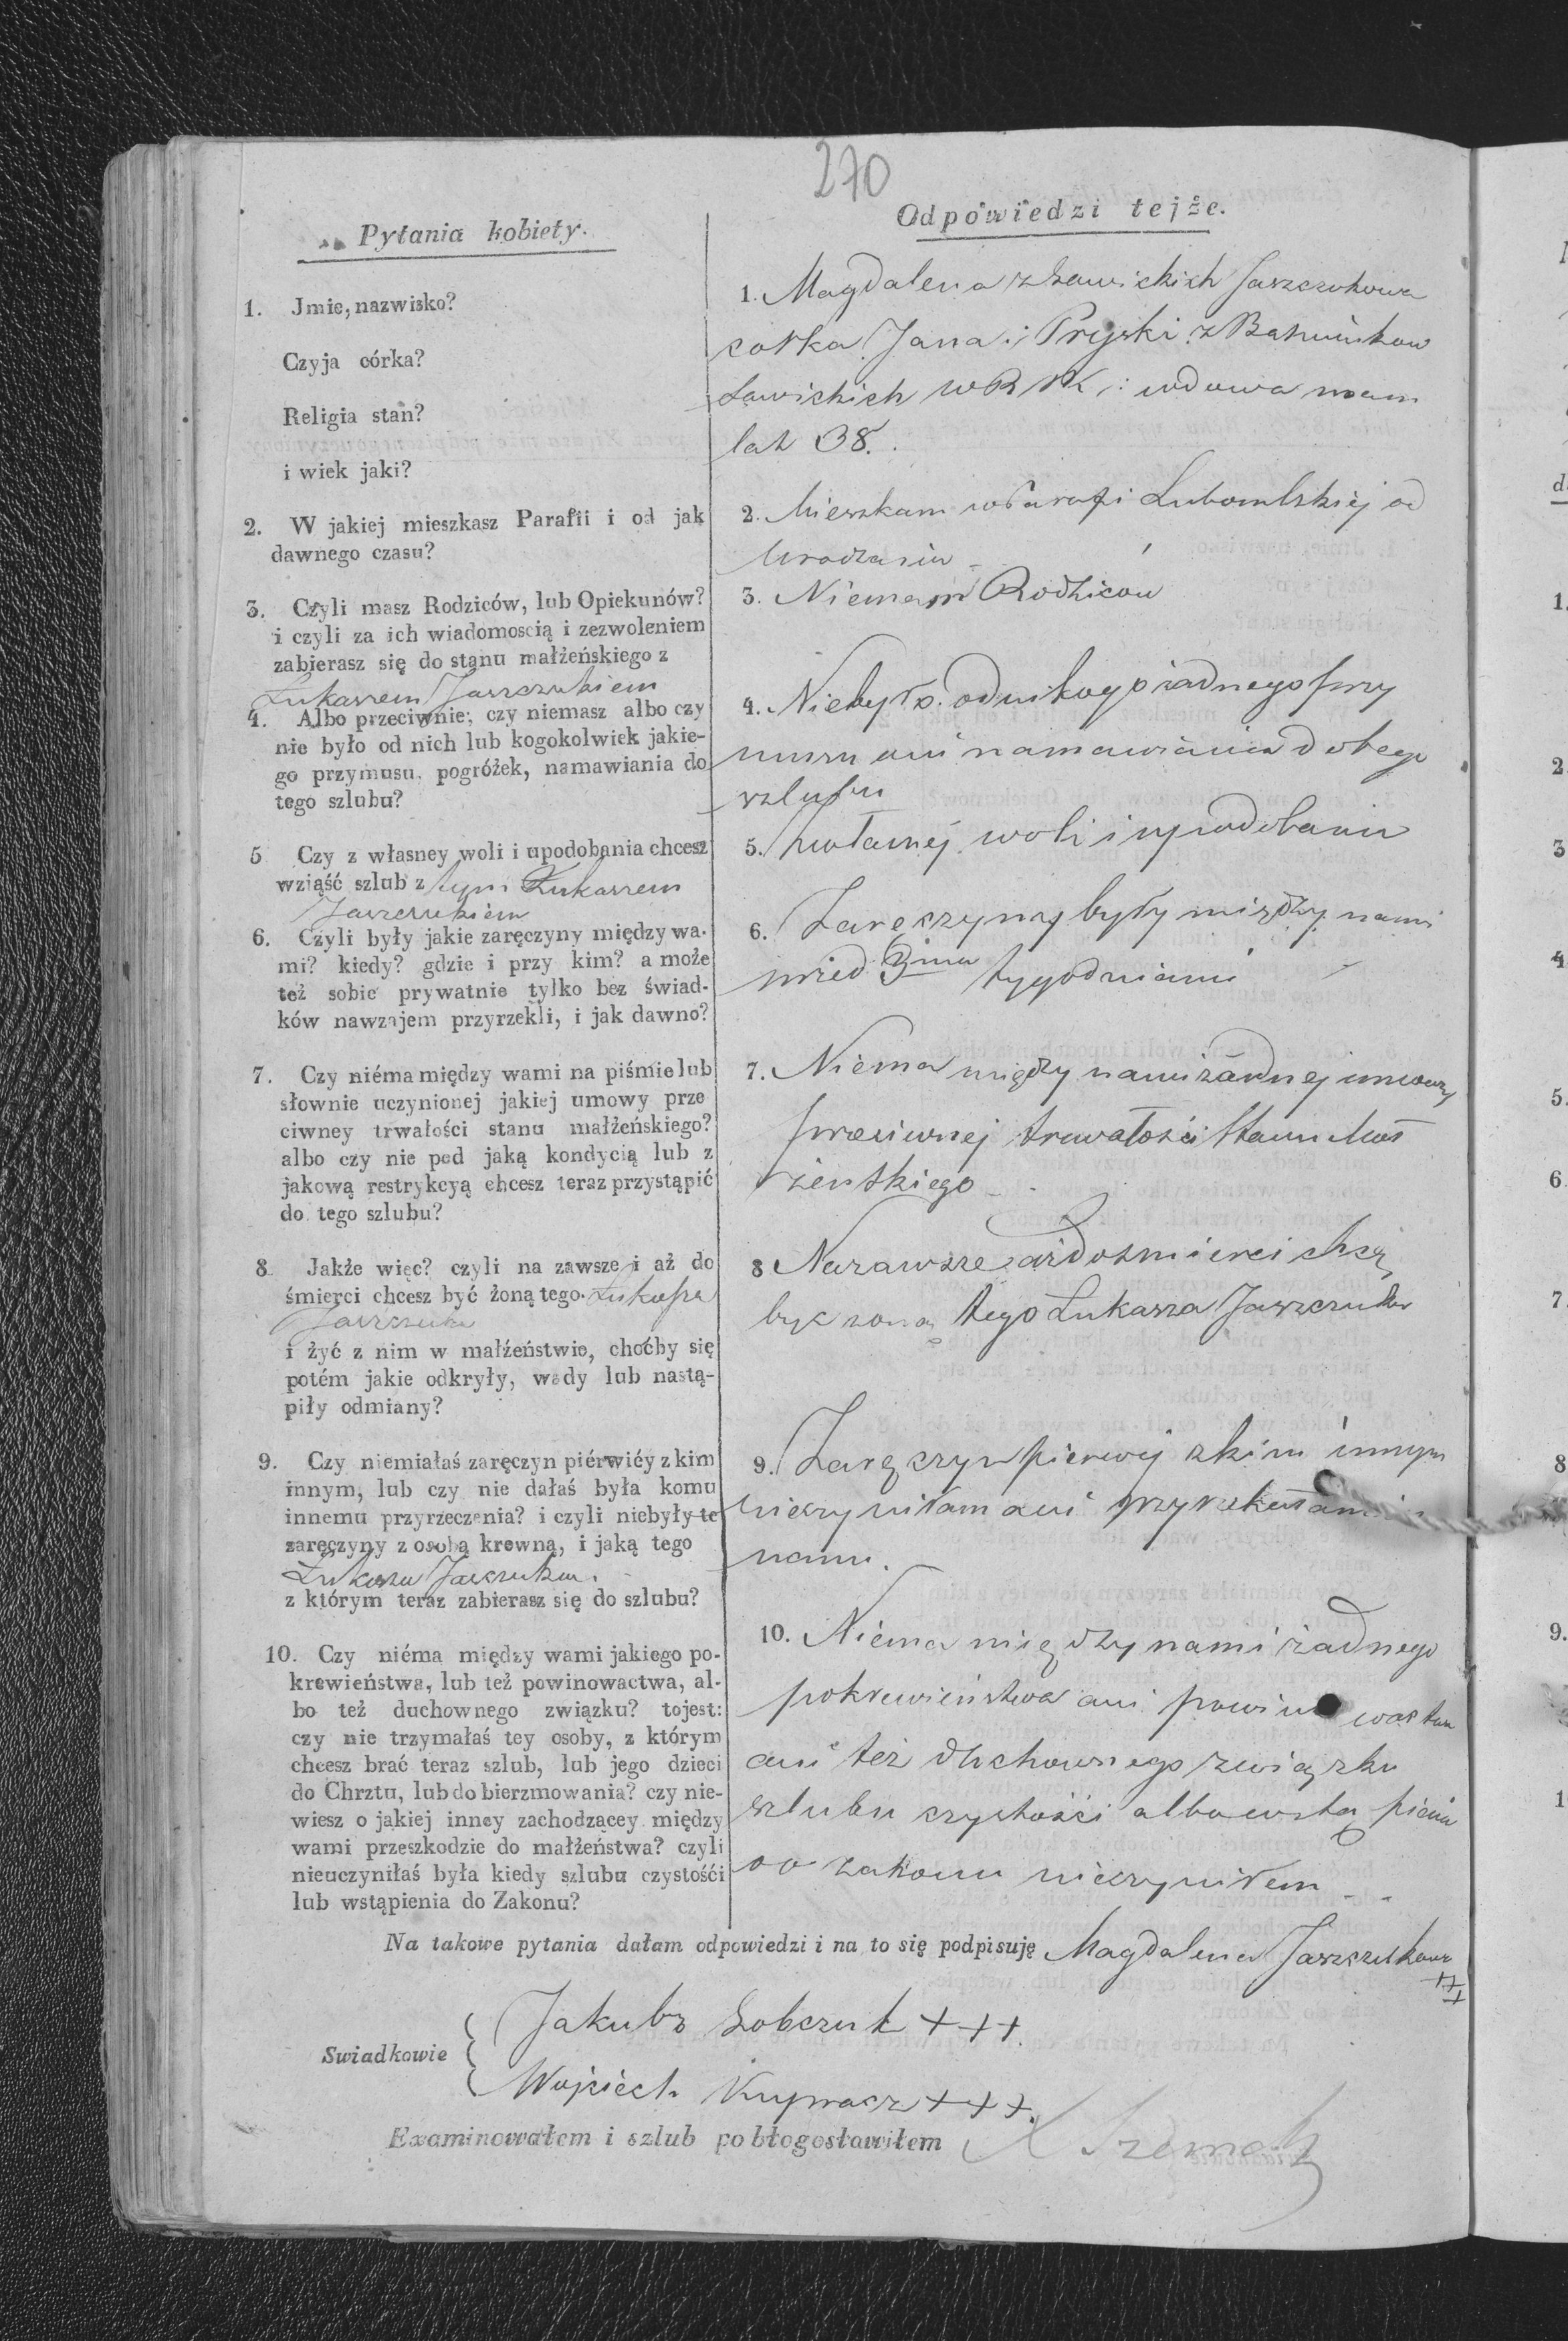 270
Pytania kobiety.
1. Jmie, nazwisko?
Czyja córka?
Religia stan?
i wiek jaki?
2. W jakiej mieszkasz Parafii i od jak
dawnego czasu?
3. Czyli masz Rodziców, lub Opiekunów?
i czyli za ich wiadomoscią i zezwoleniem
zabierasz się do stanu małżeńskiego z
Łukaszem Jaszczukiem
4. Albo przeciwnie; czy niemasz albo czy
nie było od nich lub kogokolwiek jakie-
go przymusu, pogróżek, namawiania do
tego szlubu?
5 Czy z własney woli i upodobania chcesz
wziąść szlub z tym Łukaszem
Jaszczukiem
6. Czyli były jakie zaręczyny między wa-
mi? kiedy? gdzie i przy kim? a może
też sobie prywatnie tylko bez świad-
ków nawzajem przyrzekli, i jak dawno?
7. Czy niéma między wami na piśmie lub
słownie uczynionej jakiej umowy prze
ciwney trwałości stanu małżeńskiego?
albo czy nie pod jaką kondycią lub z
jakową restrykcyą chcesz teraz przystąpić
do tego szlubu?
8 Jakże więc? czyli na zawsze i aż do
śmierci chcesz być żoną tego Łukasza
Jaszczuka
i żyć z nim w małżeństwie, choćby się
potém jakie odkryły, wady lub nastą-
piły odmiany?
9. Czy niemiałaś zaręczyn piérwiéy z kim
innym, lub czy nie dałaś była komu
innemu przyrzeczenia? i czyli niebyły te
zaręczyny z osobą krewną, i jaką tego
Łukasza Jaszczuka.
z którym teraz zabierasz się do szlubu?
10. Czy niéma między wami jakiego po-
krewieństwa, lub też powinowactwa, al-
bo też duchownego związku? tojest:
czy nie trzymałaś tey osoby, z którym
chcesz brać teraz szlub, lub jego dzieci
do Chrztu, lub do bierzmowania? czy nie-
wiesz o jakiej inney zachodzącey między
wami przeszkodzie do małżeństwa? czyli
nieuczyniłaś była kiedy szlubu czystośći
lub wstąpienia do Zakonu?
Odpowiedzi tejże.
1. Magdalena z Ławickich Jaszczukowa
corka Jana i Pryski z
Ławickich W R : wdowa mam
lat 38.
2. Mieszkam w Parafi Lubomlskiéj od
Urodzenia
3. Niemam Rodziców
4. Niebyło od nikogo żadnego przy
musu ani namawiania do tego
szlubu
5. z własnéj woli i upodobania
6. Zaręczyny były między nami
przed 3ma tygodniami
7. Niema między nami żadnej umowy
przeciwnej trwałości Stanu Mał
żeńskiego
8 Nazawsze aż do śmierci chcę
być żoną tego Łukasza Jaszczuka
9. Zaręczyn pierwej z kim innym
nieczyniłam ani przyrzekałam
10. Niema między nami żadnego
pokrewieństwa ani powinowactwa
ani też duchownego związku
szlubu czystości albo wstąpienia
do zakonu nieczyniłem
Na takowe pytania dałam odpowiedzi i na to się podpisuję Magdalena Jaszczukowa
+++
Swiadkowie
Jakub Sobczuk +++
Wojciech Kuprasz +++.
Examinowałem i szlub pobłogosławiłem X